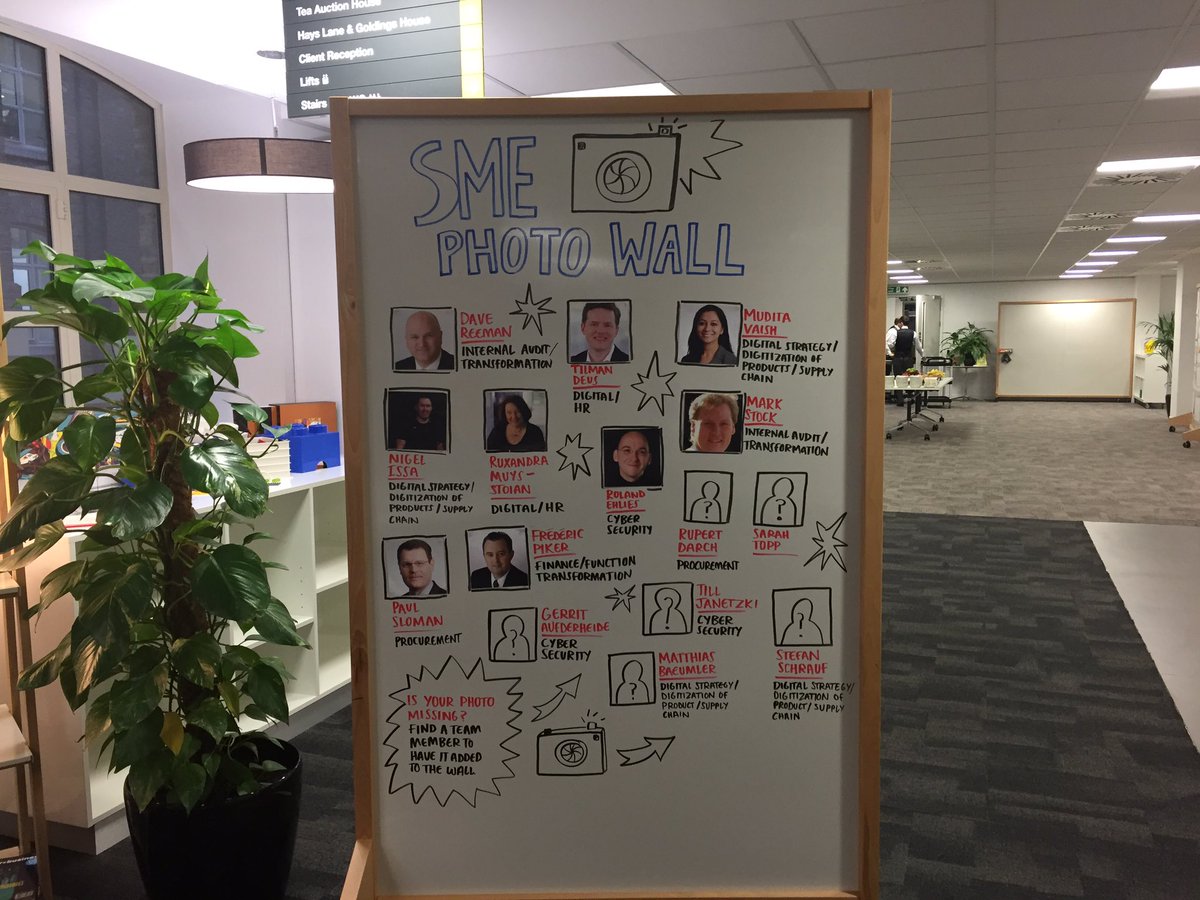 Tea Auction House
Hays Lane & Goldings House
Client Reception
Lifts
Stairs
SME
PHOTO WALL
DAVE
REEMAN
INTERNAL AUDIT/
TRANSFORMATION
TILMAN
DEUS
DIGITAL/
HR
MUDITA
VAISH
DIGITAL STRATEGY/
DIGITIZATION OF
PRODUCTS/SUPPLY
CHAIN
NIGEL
ISSA
DIGITAL STRATEGY/
DIGITIZATION OF
PRODUCTS/SUPPLY
CHAIN
RUXANDRA
MUYS-
STOIAN
DIGITAL/HR
ROLAND
EHLIES
CYBER
SECURITY
MARK
STOCK
INTERNAL AUDIT/
TRANSFORMATION
RUPERT
DARCH
PROCUREMENT
SARAH
TOPP
PAUL
SLOMAN
PROCUREMENT
FRÉDÉRIC
PIKER
FINANCE/FUNCTION
TRANSFORMATION
GERRIT
AUFDERHEIDE
CYBER
SECURITY
TILL
JANETZKI
CYBER
SECURITY
MATTHIAS
BAEUMLER
DIGITAL STRATEGY/
DIGITIZATION OF
PRODUCT/SUPPLY
CHAIN
STEFAN
SCHRAUF
DIGITAL STRATEGY/
DIGITIZATION OF
PRODUCT/SUPPLY
CHAIN
IS YOUR PHOTO
MISSING?
FIND A TEAM
MEMBER TO
HAVE IT ADDED
TO THE WALL